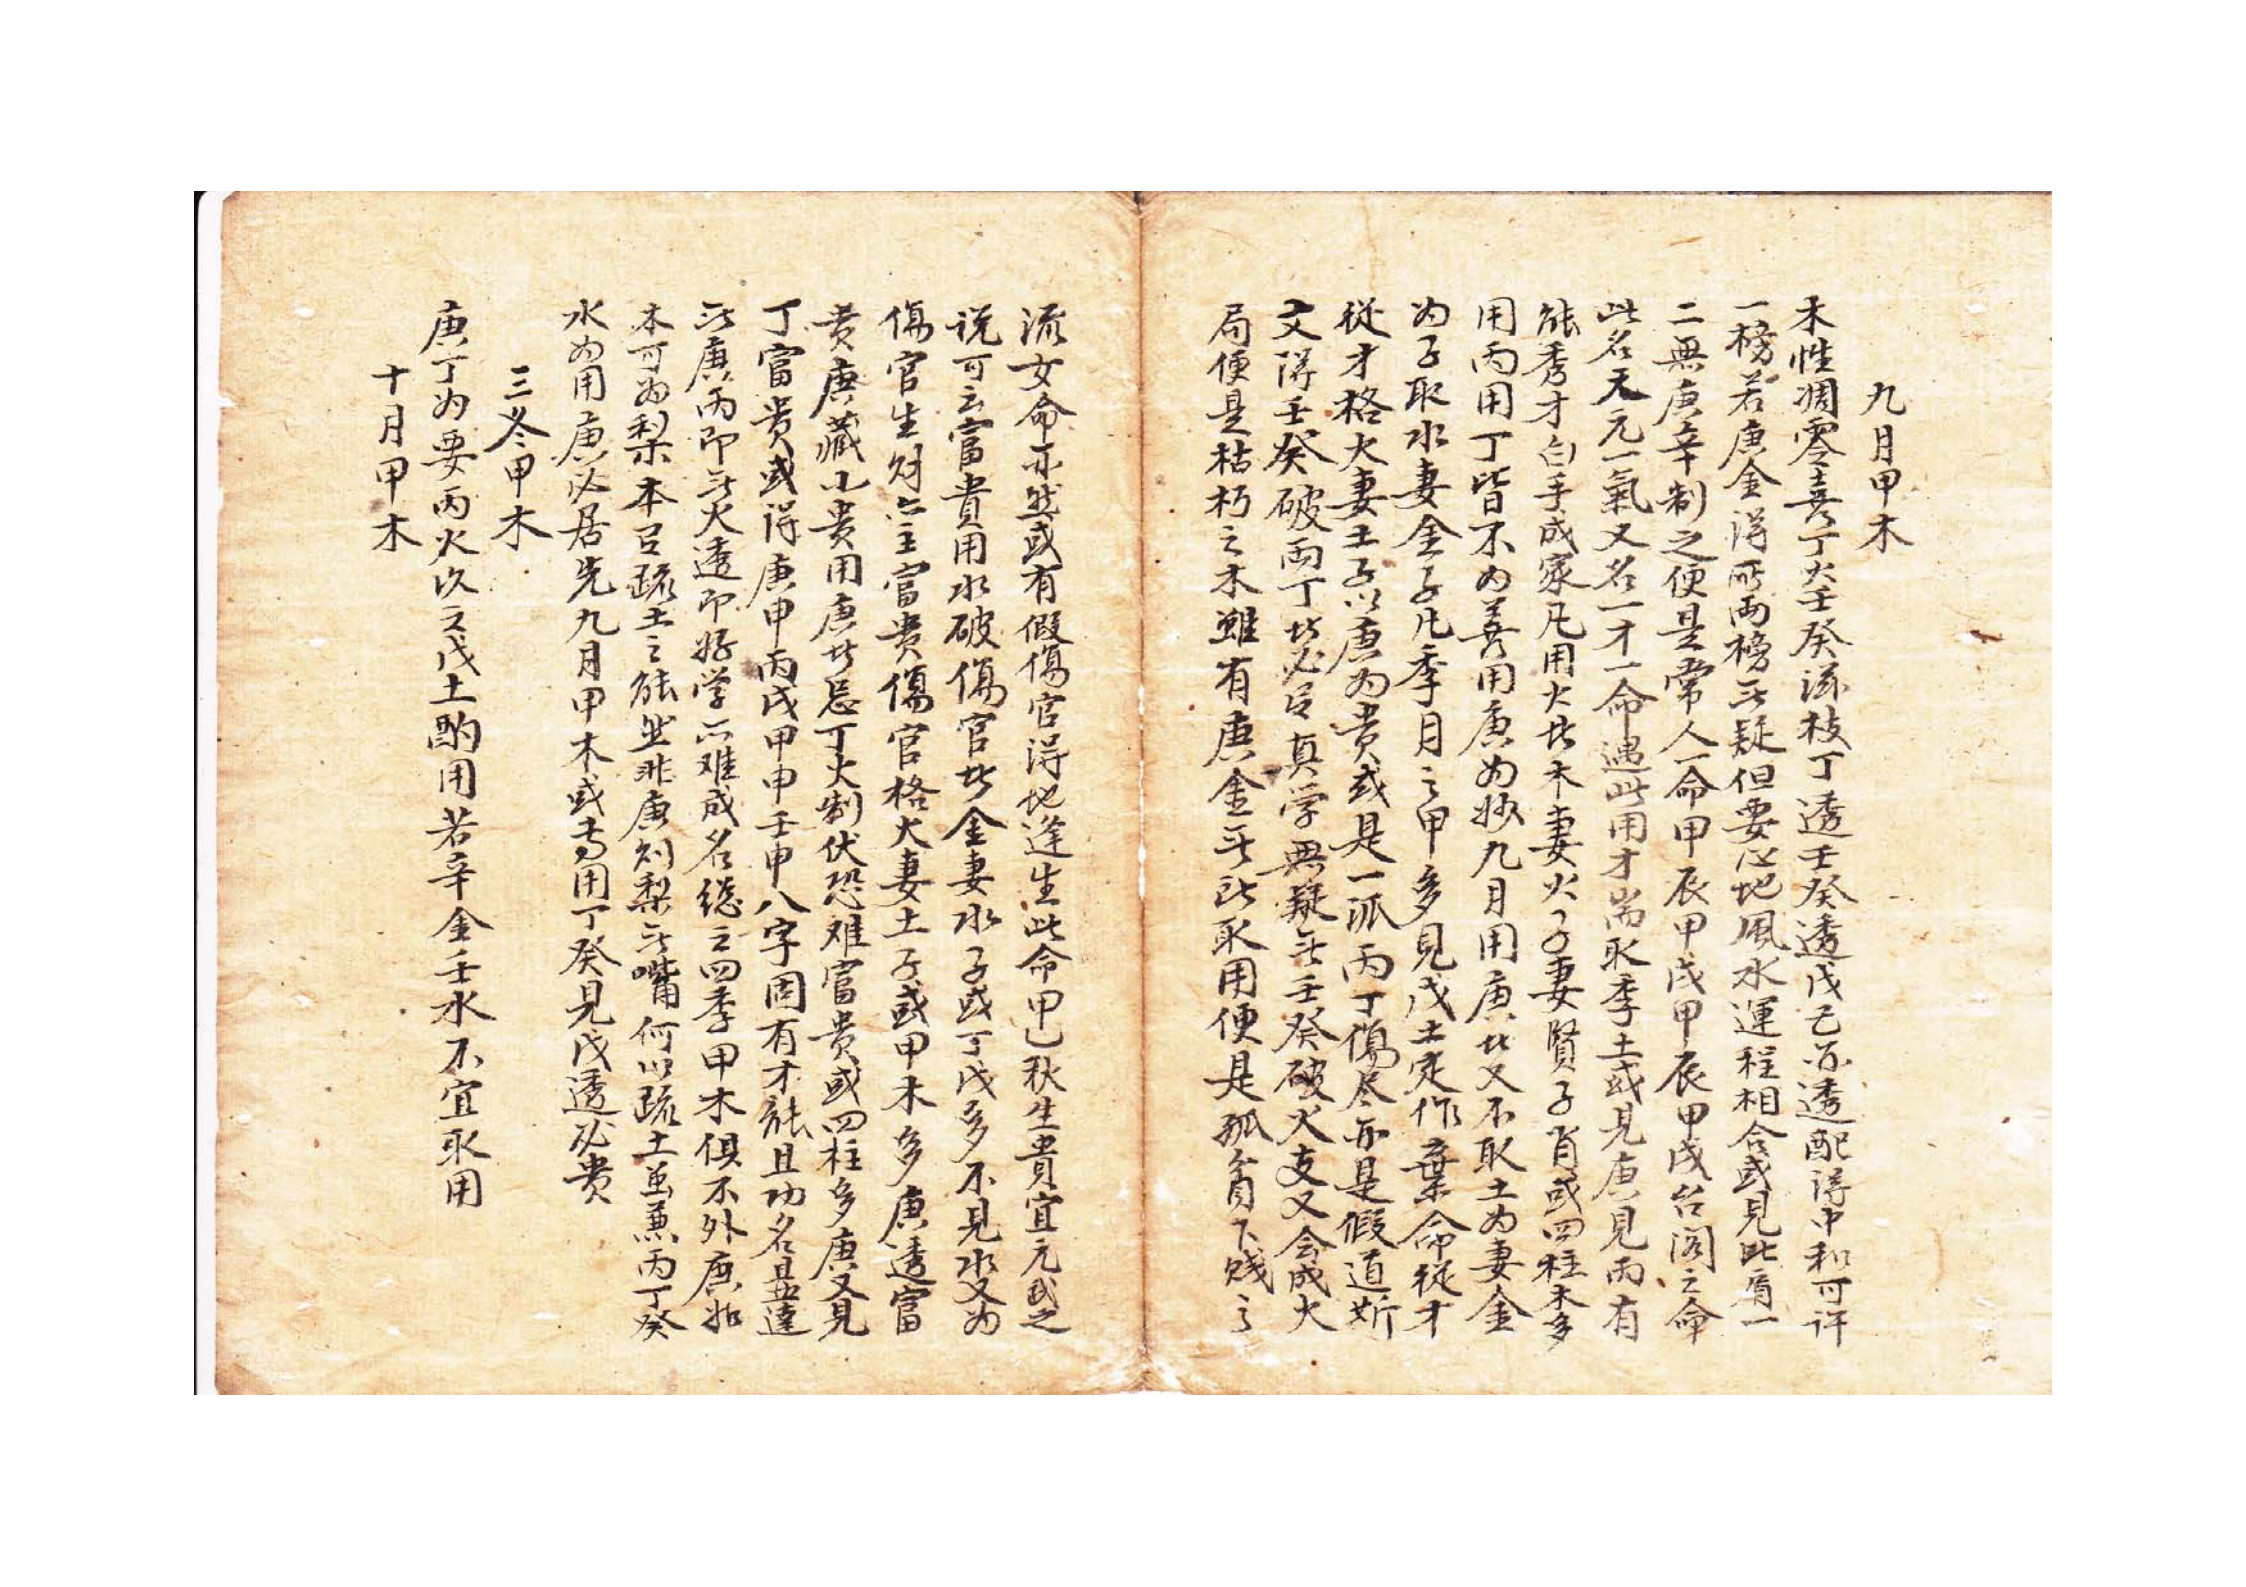 九月甲木
木性凋零喜丁火壬癸滋枝丁透壬癸透戊己亦透配得中和可許
一榜若庚金得所兩榜无疑但要心地風水運程相合或見比肩一
二無庚辛制之便是常人一命甲辰甲戌甲辰甲戌台閣之命
此名天元一氣又名一才一命遇此用才耑取季土或見庚見丙有
能秀才白手成家凡用火者木妻火子妻賢子肖或四柱木多
用丙用丁皆不为善用庚为妙九月用庚者又不取土为妻金
为子取水妻金子凡季月之甲多見戊土定作棄命從才
從才格火妻土子以庚为贵或是一派丙丁傷尽亦是假道斯
文得壬癸破丙丁者必名真学無疑无壬癸破火支又会成火
局便是枯朽之木雖有庚金无所取用便是孤貧下賤之
流女命亦然或有假傷官得地逢生此命甲乙秋生貴宜元武之
说可云富貴用水破傷官者金妻水子或丁戊多不見水又为
傷官生财亦主富贵傷官格火妻土子或甲木多庚透富
贵庚藏小贵用庚者忌丁火制伏恐难富贵或四柱多庚又見
丁富贵或得庚申丙戌甲申壬申八字固有才能且功名显達
无庚丙即无火透即好学亦难成名總之四季甲木俱不外庚如
木可为梨木名疏土之能然非庚则梨无嘴何以疏土虽兼丙丁癸
水为用庚必居先九月甲木或专用丁癸見戊透必贵
三冬甲木
庚丁为要丙火次之戊土酌用若辛金壬水不宜取用
十月甲木